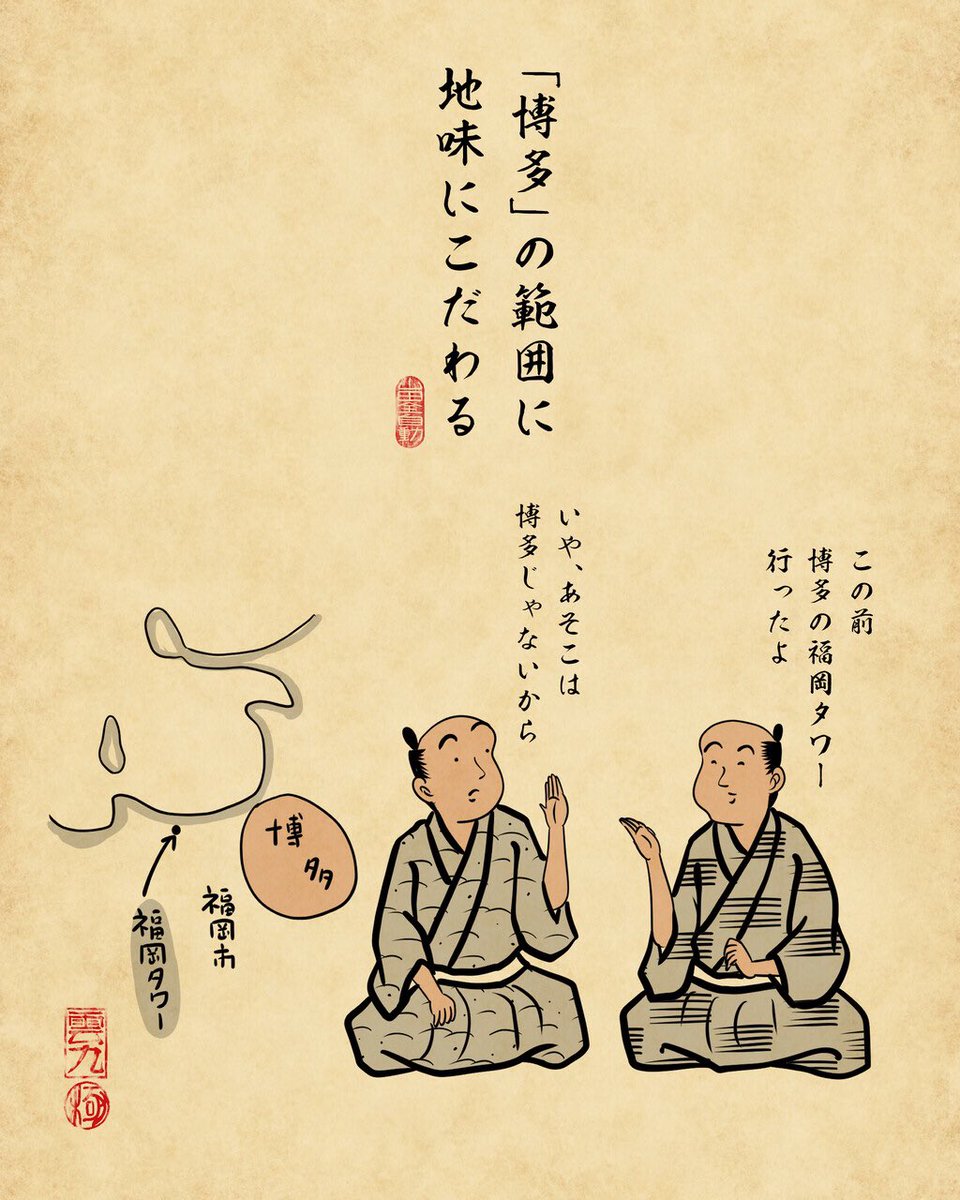 「博多」の範囲に
地味にこだわる
この前
博多の福岡タワー
行ったよ
いや、あそこは
博多じゃないから
博多
福岡市
福岡タワー
雲九